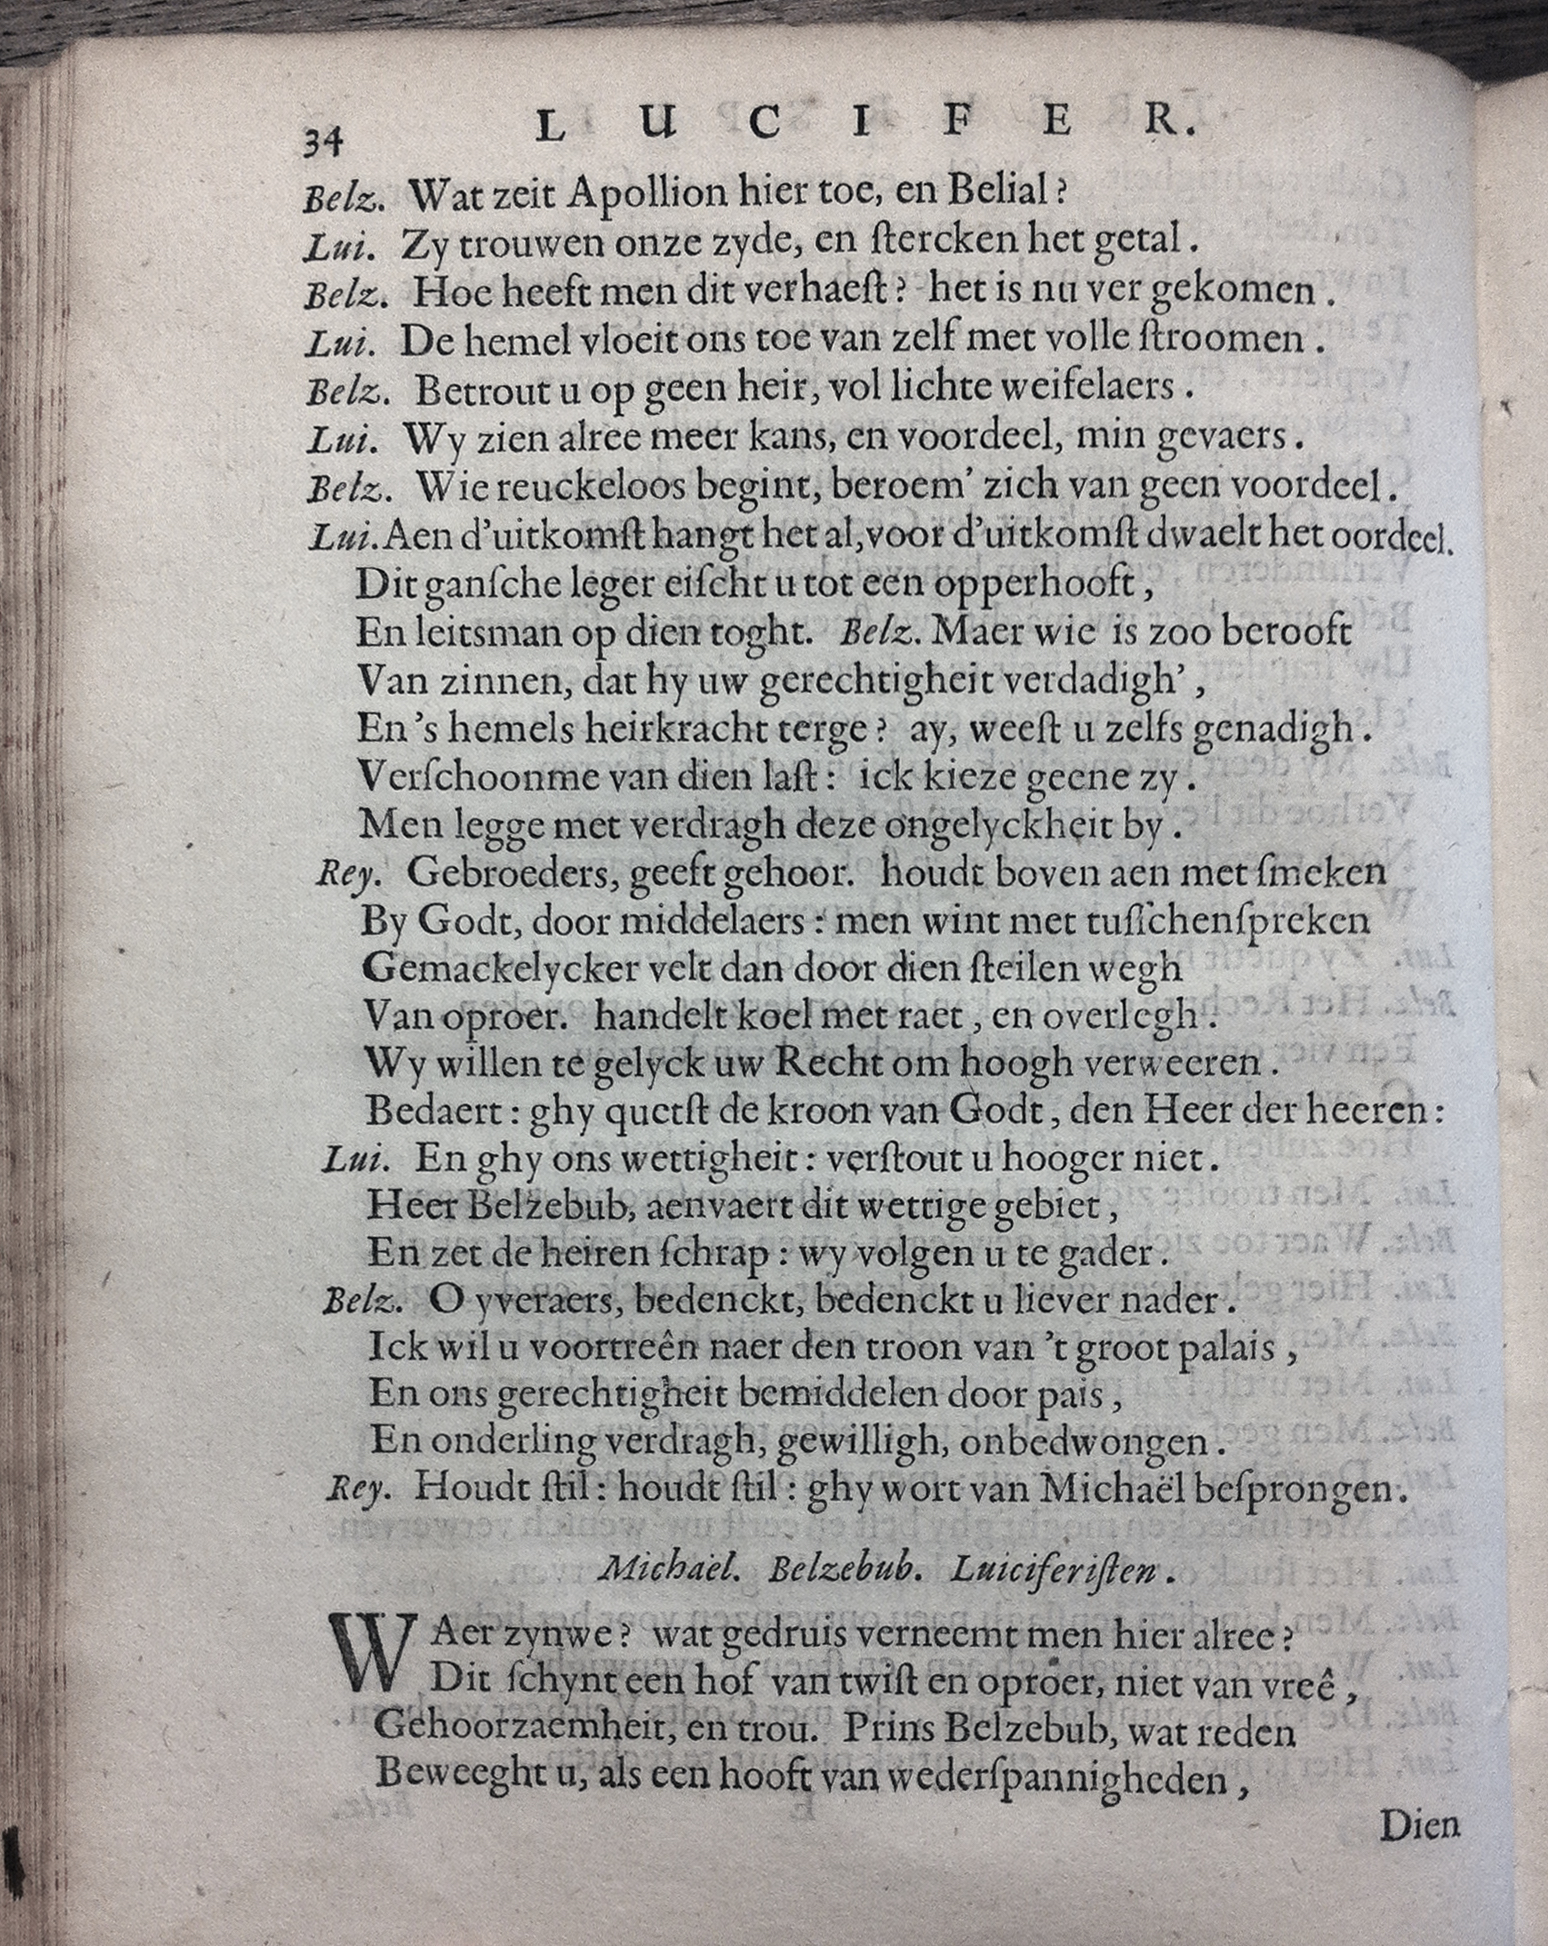 34 LUCIFER.
Belz. Wat zeit Apollion hier toe, en Belial?
Lui. Zy trouwen onze zyde, en ſtercken het getal.
Belz. Hoe heeft men dit verhaeſt? het is nu ver gekomen.
Lui. De hemel vloeit ons toe van zelf met volle ſtroomen.
Belz. Betrout u op geen heir, vol lichte weifelaers.
Lui. Wy zien alree meer kans, en voordeel, min gevaers.
Belz. Wie reuckeloos begint, beroem' zich van geen voordeel.
Lui. Aen d'uitkomſt hangt het al, voor d'uitkomſt dwaelt het oordeel.
Dit ganſche leger eiſcht u tot een opperhooft,
En leitsman op dien toght. Belz. Maer wie is zoo berooft
Van zinnen, dat hy uw gerechtigheit verdadigh',
En 's hemels heirkracht terge? ay, weeſt u zelfs genadigh.
Verſchoonme van dien laſt: ick kieze geene zy.
Men legge met verdragh deze ongelyckheit by.
Rey. Gebroeders, geeft gehoor. houdt boven aen met ſmeken
By Godt, door middelaers: men wint met tuſſchenſpreken
Gemackelycker velt dan door dien ſteilen wegh
Van oproer. handelt koel met raet, en overlegh.
Wy willen te gelyck uw Recht om hoogh verweeren.
Bedaert: ghy quetſt de kroon van Godt, den Heer der heeren:
Lui. En ghy ons wettigheit: verſtout u hooger niet.
Heer Belzebub, aenvaert dit wettige gebiet,
En zet de heiren ſchrap: wy volgen u te gader.
Belz. O yveraers, bedenckt, bedenckt u liever nader.
Ick wil u voortreên naer den troon van 't groot palais,
En ons gerechtigheit bemiddelen door pais,
En onderling verdragh, gewilligh, onbedwongen.
Rey. Houdt ſtil: houdt ſtil: ghy wort van Michaël beſprongen.
Michaël. Belzebub. Luiciferiſten.
WAer zynwe? wat gedruis verneemt men hier alree?
Dit ſchynt een hof van twiſt en oproer, niet van vreê,
Gehoorzaemheit, en trou. Prins Belzebub, wat reden
Beweeght u, als een hooft van wederſpannigheden,
Dien